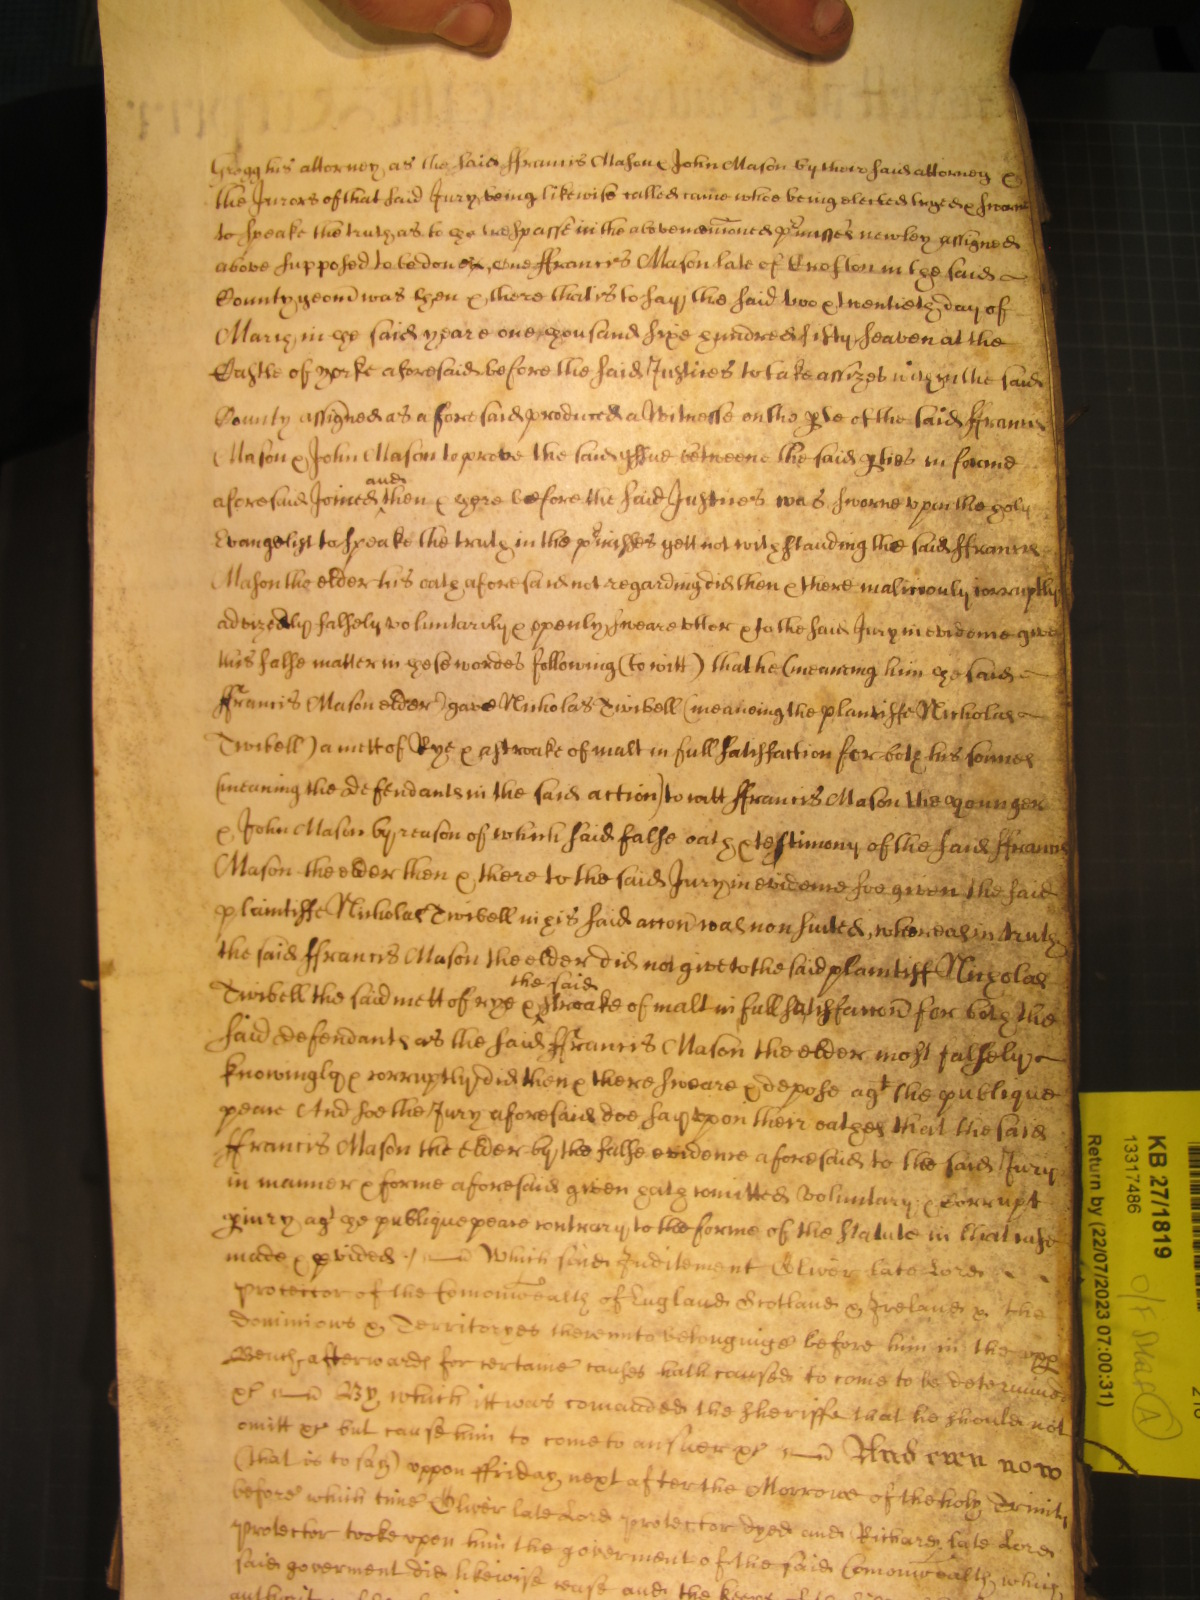 his attorney as the said ffrancis Mason & John Mason by their said attorney &
the Jurors of that said Jury being likewise called came whoe being elected tryed & sworne
to speake the truth as to the trespasse in the abovemenconed pᵉmisses newley assigned
above supposed to be done one ffrancis Mason late of Crofton in the said
County yeom̄ was then & there that is to say the said two & twentieth day of
March in the said yeare one thousand sixe hundred fifty seaven at the
Castle of yorke aforesaid before the said Justices to take assizes within the said
County assigned as aforesaid produced a Witnesse on the pte of the said ffrancis
Mason & John Mason to prove the said yssue betweene the said pties in forme
aforesaid Joined and then & there before the said Justices was sworne vpon the holy
Evangelist to speake the truth in the pᵉmisses yett notwithstanding the said ffrancis
Mason the elder his oath aforesaid not regarding did then & there maliciously corruptly
advizedly falsely voluntarily & openly sweare vtter & to the said Jury in evidence give
this false matter in these wordes following (to witt) that he (meaneing him the said
ffrancis Mason elder) gave Nicholas Twibell (meaneing the plaintiffe Nicholas
Twibell) a mett of Rye & a stroake of malt in full satisfaction for both his sonnes
(meaning the defendants in the said action) to witt ffrancis Mason the younger
& John Mason by reason of which said false oath & testimony of the said ffrancis
Mason the elder then & there to the said Jury in evidence soe given the said
plaintiffe Nicholas Twibell in his said accon̄ was non suited, whereas in truth
the said ffrancis Mason the elder did not give to the said plaintiff Nicholas
Twibell the said mett of rye & the said stroake of malt in full satisfaccon̄ for both the
said defendants as the said ffrancis Mason the elder most falsely
knowingly & corruptly did then & there sweare & depose agᵗ the publique
peace And soe the Jury aforesaid doe say vpon their oathes that the said
ffrancis Mason the elder by the false evidence aforesaid to the said Jury
in manner & forme aforesaid given hath comitted voluntary & corrupt
piury agᵗ the publique peace contrary to the forme of the statute in that case
made & pvided Which said Inditement Oliver late Lord
Protector of the Com̄onwealth of England Scotland & Ireland & the
Dominions & Territoryes thereunto belonginge before him in the vpp
Bench afterwards for certaine causes hath caused to come to be determined
&c By which itt was comanded the sheriffe that he should not
omitt &c but cause him to come to answer &c And even now
(that is to say) vppon ffriday next after the Morrowe of the holy Trinity
before which time Oliver late Lord protector dyed and Richard late Lord
Protector tooke vpon him the goverment of the said Com̄onwealth, which
said goverment did likewise cease and the keepers of the
KB 27/1819
13317486
Return by (22/07/2023 07:00:31)